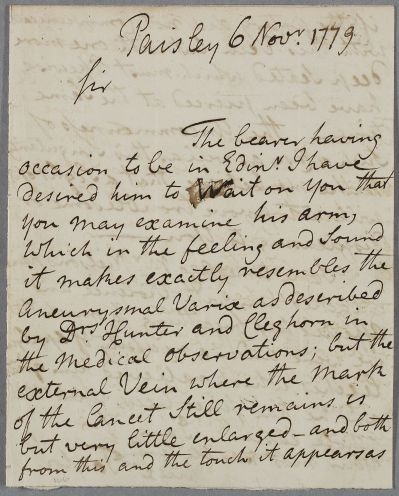 Paisley 6 Novr. 1779
Sir
The bearer having
occasion to be in Edinr. I have
desired him to Wait on you that
you may examine his arm,
which in the feeling and Sound
it makes exactly resembles the
Aneurysmal Varix as described
by Drs. Hunter and Cleghorn in
the Medical Observations; but the
external Vein where the Mark
of the Lancet Still remains is
but very little enlarged - and both
from this and the touch it appears as